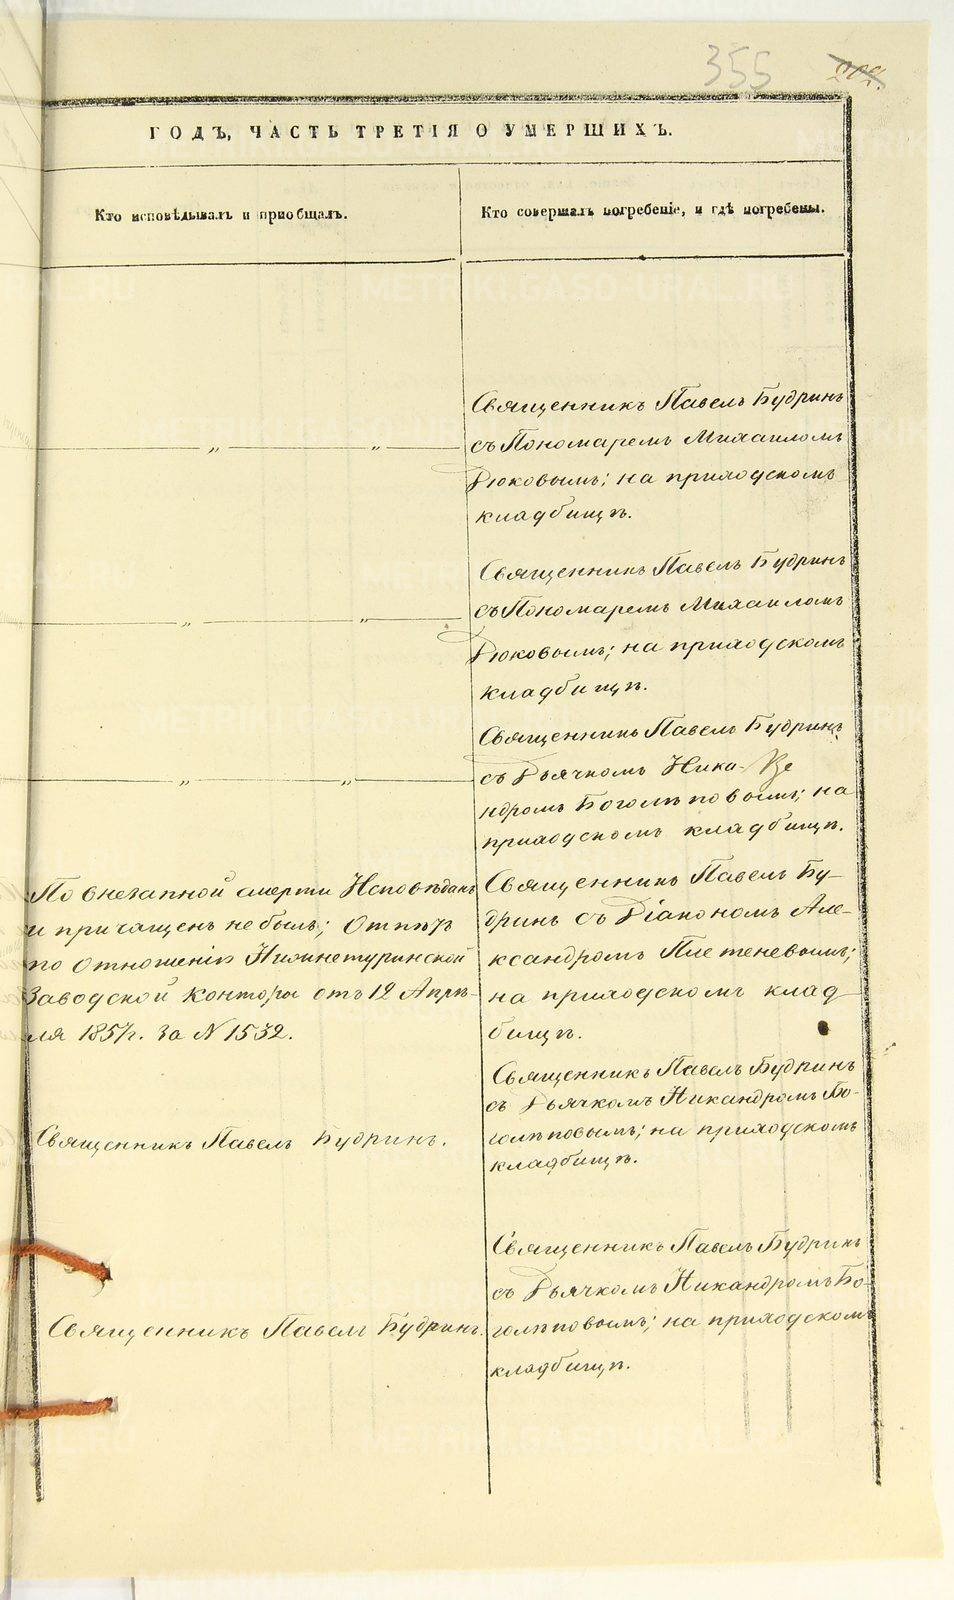 355
ГОДЪ, ЧАСТЬ ТРЕТІЯ О УМЕРШИХЪ.
Кто исповѣдывалъ и пріобщалъ.
Кто совершалъ погребеніе, и гдѣ погребены.
METRIKI.GASO-URAL.RU
„ „
Священникъ Павелъ Будринъ
съ Пономаремъ Михаиломъ
Дюковымъ; на приходскомъ
кладбищѣ.
„ „
Священникъ Павелъ Будринъ
съ Пономаремъ Михаиломъ
Дюковымъ; на приходскомъ
кладбищѣ.
„ „
Священникъ Павелъ Будринъ
съ Дьячкомъ Ника-
ндромъ Боголѣповымъ; на
приходскомъ кладбищѣ.
По внезапной смерти Исповѣданъ
и причащенъ не былъ; Отпѣтъ
по отношенію Нижнетуринской
Заводской Конторы отъ 12 Апрѣ-
ля 1857г. за N 1532.
Священникъ Павелъ Бу-
дринъ съ Діакономъ Але-
ксандромъ Плетеневымъ;
на приходскомъ клад
бищѣ.
Священникъ Павелъ Будринъ.
Священникъ Павелъ Будринъ
съ Дьячкомъ Никандромъ Бо-
голѣповымъ; на приходскомъ
кладбищѣ.
Священникъ Павелъ Будринъ.
Священникъ Павелъ Будринъ
съ Дьячкомъ Никандромъ Бо-
голѣповымъ; на приходскомъ
кладбищѣ.